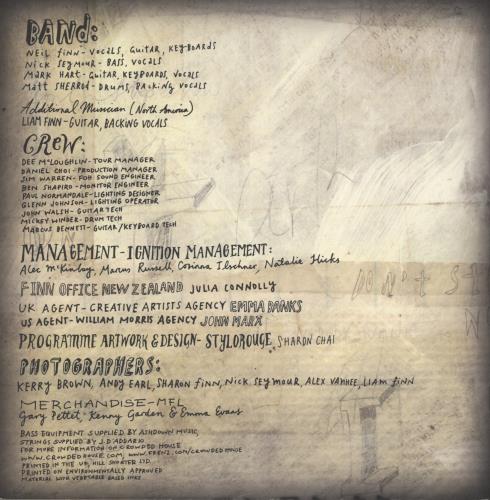 BAND:
NEIL FINN - VOCALS, GUITAR, KEYBOARDS
NICK SEYMOUR - BASS, VOCALS
MARK HART - GUITAR, KEYBOARDS, VOCALS
MATT SHERROD - DRUMS, BACKING VOCALS
Additional Musician (North America)
LIAM FINN - GUITAR, BACKING VOCALS
CREW:
DEE McLOUGHLIN - TOUR MANAGER
DANIEL CHOI - PRODUCTION MANAGER
SIM WARREN - FOH SOUND ENGINEER
BEN SHAPIRO - MONITOR ENGINEER
PAUL NORMANDALE - LIGHTING DESIGNER
GLENN JOHNSON - LIGHTING OPERATOR
JOHN WALSH - GUITAR TECH
MICKEY WINDER - DRUM TECH
MARCUS BENNETT - GUITAR/KEYBOARD TECH
MANAGEMENT - IGNITION MANAGEMENT:
Alec McKinlay, Marcus Russell, Corinna Ilschner, Natalie Hicks
FINN OFFICE NEW ZEALAND JULIA CONNOLLY
UK AGENT - CREATIVE ARTISTS AGENCY EMMA BANKS
US AGENT - WILLIAM MORRIS AGENCY JOHN MARX
PROGRAMME ARTWORK & DESIGN - STYLOROUGE, SHARON CHAI
PHOTOGRAPHERS:
KERRY BROWN, ANDY EARL, SHARON FINN, NICK SEYMOUR, ALEX VANHEE, LIAM FINN
MERCHANDISE - MFL
Gary Pettet, Kenny Garden & Emma Evans
BASS EQUIPMENT SUPPLIED BY ASHDOWN MUSIC,
STRINGS SUPPLIED BY J. D'ADDARIO
FOR MORE INFORMATION ON CROWDED HOUSE
WWW.CROWDEDHOUSE.COM, WWW.FRENZ.COM/CROWDEDHOUSE
PRINTED IN THE UK, HILL SHORTER LTD.
PRINTED ON ENVIRONMENTALLY APPROVED
MATERIAL WITH VEGETABLE BASED INKS